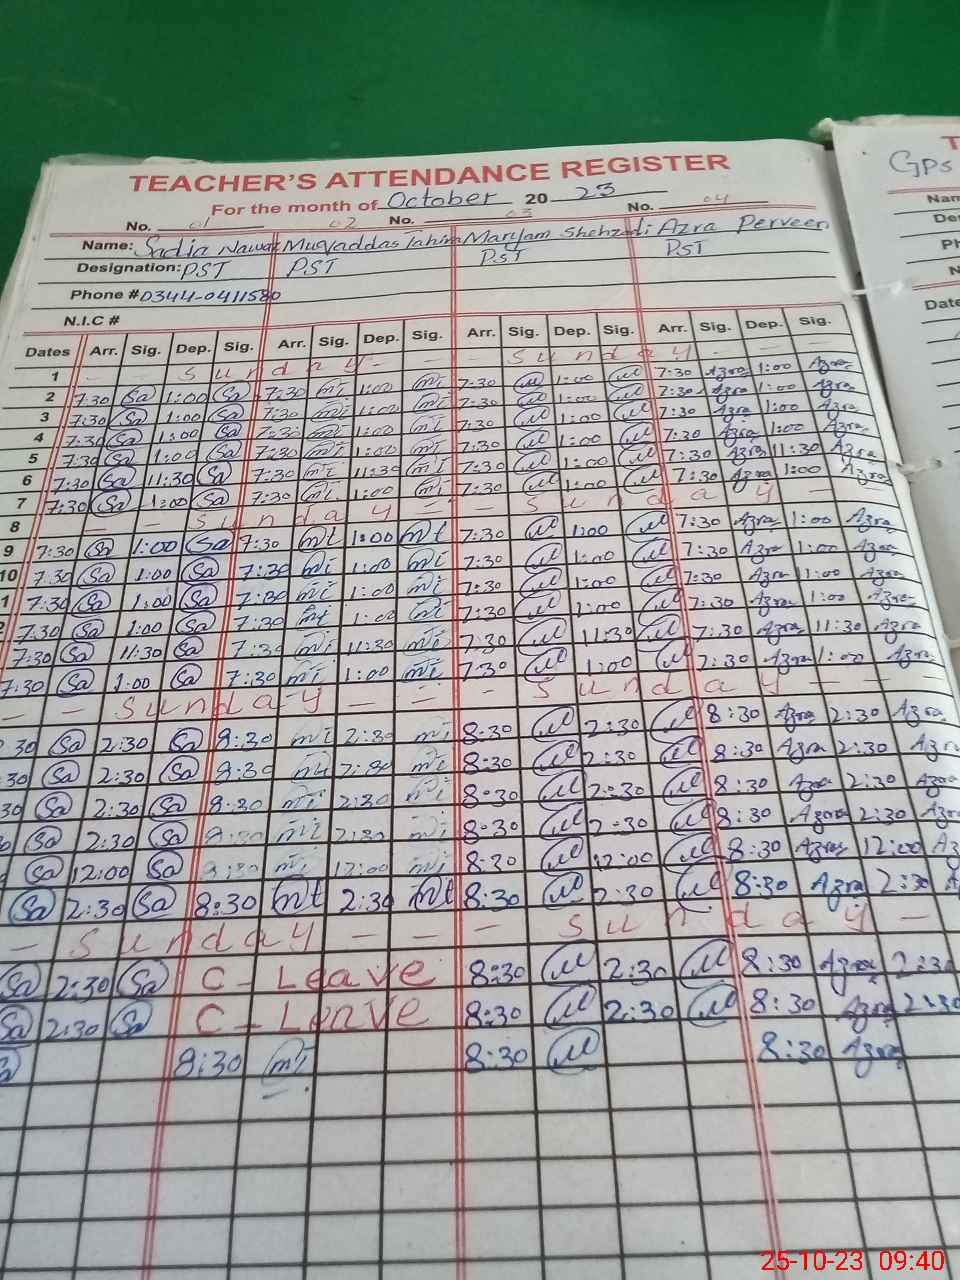 TEACHER'S ATTENDANCE REGISTER
For the month of October 20 23
No. 01 02 No. 03 No. 04
Name: Sadia Nawaz Muqaddas Tahira Maryam Shehzadi Azra Perveen
Designation: PST PST PST PST
Phone # 0344-0411580
N.I.C #
Dates Arr. Sig. Dep. Sig. Arr. Sig. Dep. Sig. Arr. Sig. Dep. Sig. Arr. Sig. Dep. Sig.
1 - - Sunday - - - Sunday - - -
2 7:30 Sa 1:00 Sa 7:30 mt 1:00 mt 7:30 M 1:00 M 7:30 Azra 1:00 Azra
3 7:30 Sa 1:00 Sa 7:30 mt 1:00 mt 7:30 M 1:00 M 7:30 Azra 1:00 Azra
4 7:30 Sa 1:00 Sa 7:30 mt 1:00 mt 7:30 M 1:00 M 7:30 Azra 1:00 Azra
5 7:30 Sa 1:00 Sa 7:30 mt 1:00 mt 7:30 M 1:00 M 7:30 Azra 1:00 Azra
6 7:30 Sa 11:30 Sa 7:30 mt 11:30 mt 7:30 M 1:00 M 7:30 Azra 11:30 Azra
7 7:30 Sa 1:00 Sa 7:30 mt 1:00 mt 7:30 M 1:00 M 7:30 Azra 1:00 Azra
8 - - Sunday - - - Sunday - - -
9 7:30 Sa 1:00 Sa 7:30 mt 1:00 mt 7:30 M 1:00 M 7:30 Azra 1:00 Azra
10 7:30 Sa 1:00 Sa 7:30 mt 1:00 mt 7:30 M 1:00 M 7:30 Azra 1:00 Azra
1 7:30 Sa 1:00 Sa 7:30 mt 1:00 mt 7:30 M 1:00 M 7:30 Azra 11:00 Azra
7:30 Sa 1:00 Sa 7:30 mt 1:00 mt 7:30 M 1:00 M 7:30 Azra 1:00 Azra
7:30 Sa 11:30 Sa 7:30 mt 11:30 mt 7:30 M 11:30 M 7:30 Azra 11:30 Azra
7:30 Sa 1:00 Sa 7:30 mt 1:00 mt 7:30 M 1:00 M 7:30 Azra 1:00 Azra
- - Sunday - - - Sunday - - -
30 Sa 2:30 Sa 8:30 mt 2:30 mt 8:30 M 2:30 M 8:30 Azra 2:30 Azra
:30 Sa 2:30 Sa 8:30 mt 2:30 mt 8:30 M 2:30 M 8:30 Azra 2:30 Azra
30 Sa 2:30 Sa 8:30 mt 2:30 mt 8:30 M 2:30 M 8:30 Azra 2:30 Azra
Sa 2:30 Sa 8:30 mt 2:30 mt 8:30 M 2:30 M 8:30 Azra 2:30 Azra
Sa 12:00 Sa 8:30 mt 12:00 mt 8:30 M 12:00 M 8:30 Azra 12:00 Az
Sa 2:30 Sa 8:30 mt 2:30 mt 8:30 M 2:30 M 8:30 Azra 2:30 A
- Sunday - - - Sunday -
Sa 2:30 Sa C-Leave 8:30 M 2:30 M 8:30 Azra 2:30
Sa 2:30 Sa C-Leave 8:30 M 2:30 M 8:30 Azra 2:30
8:30 mt 8:30 M 8:30 Azra
GPS
Nam
De
Ph
N
Date
25-10-23 09:40